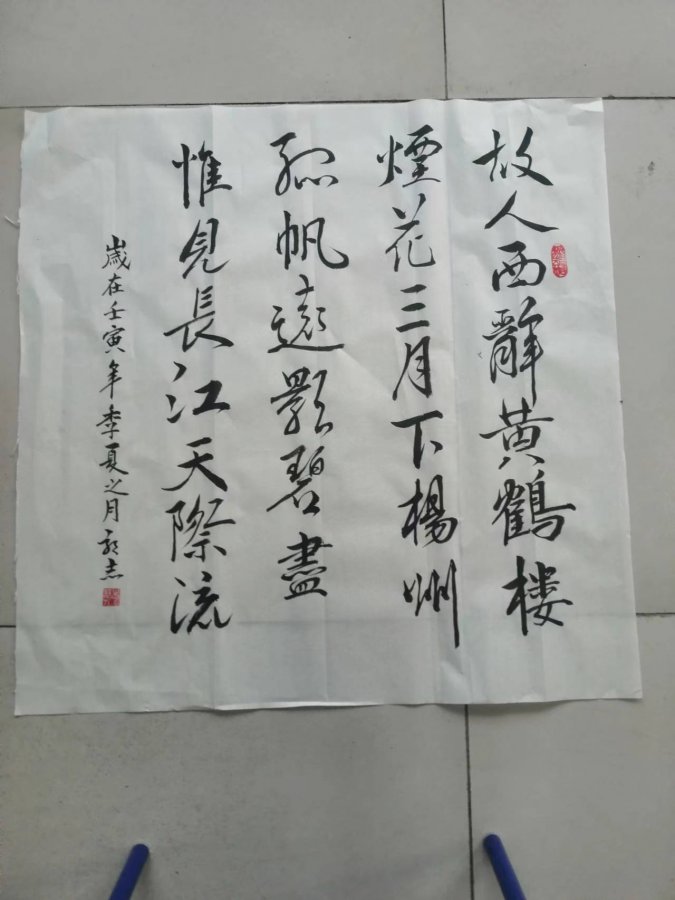 故人西辭黄鶴楼
煙花三月下楊州
孤帆遠影碧盡
惟見長江天際流
歲在壬寅年季夏之月志